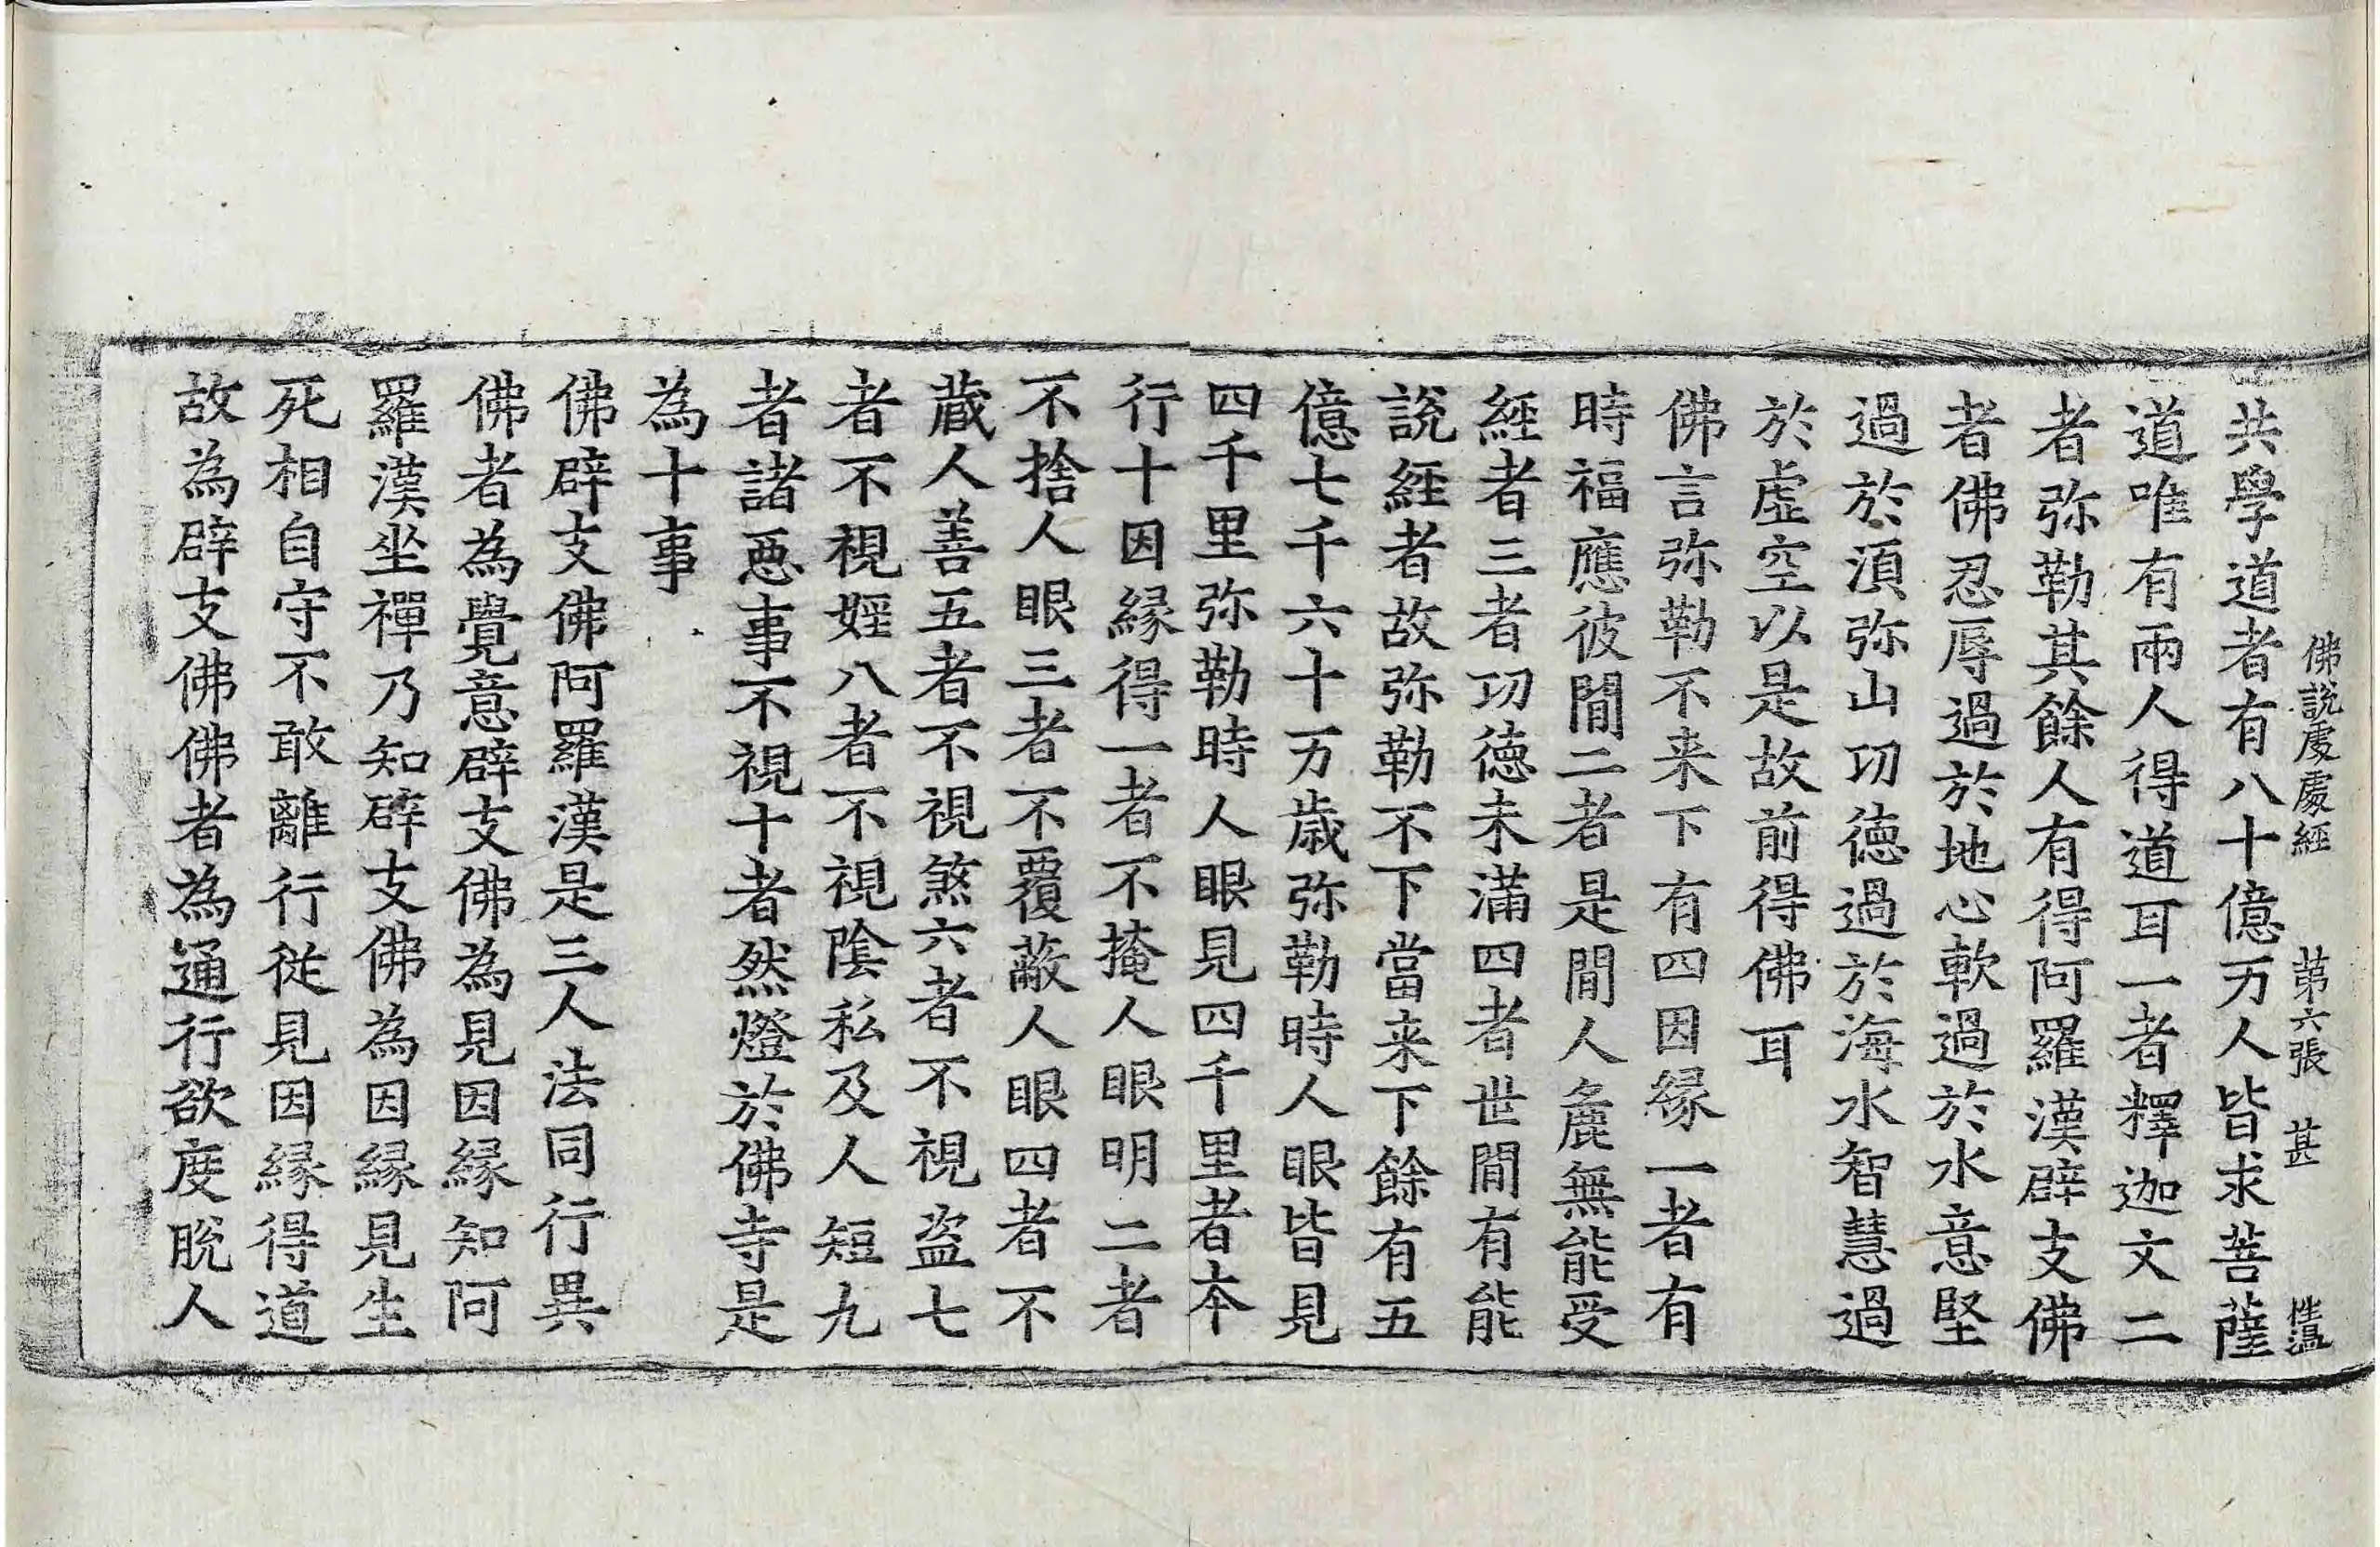 佛說處處經 第六張 甚 性温
共學道者有八十億万人皆求菩薩
道唯有兩人得道耳一者釋迦文二
者弥勒其餘人有得阿羅漢辟支佛
者佛忍辱過於地心軟過於水意堅
過於湏弥山功德過於海水智慧過
於虛空以是故前得佛耳
佛言弥勒不来下有四因緣一者有
時福應彼間二者是間人麁無能受
經者三者功德未滿四者世間有能
說經者故弥勒不下當来下餘有五
億七千六十万歲弥勒時人眼皆見
四千里弥勒時人眼見四千里者本
行十因緣得一者不掩人眼明二者
不捨人眼三者不覆蔽人眼四者不
藏人善五者不視煞六者不視盗七
者不視婬八者不視陰私及人短九
者諸惡事不視十者然燈於佛寺是
為十事
佛辟支佛阿羅漢是三人法同行異
佛者為覺意辟支佛為見因緣知阿
羅漢坐禪乃知辟支佛為因緣見生
死相自守不敢離行從見因緣得道
故為辟支佛佛者為通行欲度脫人